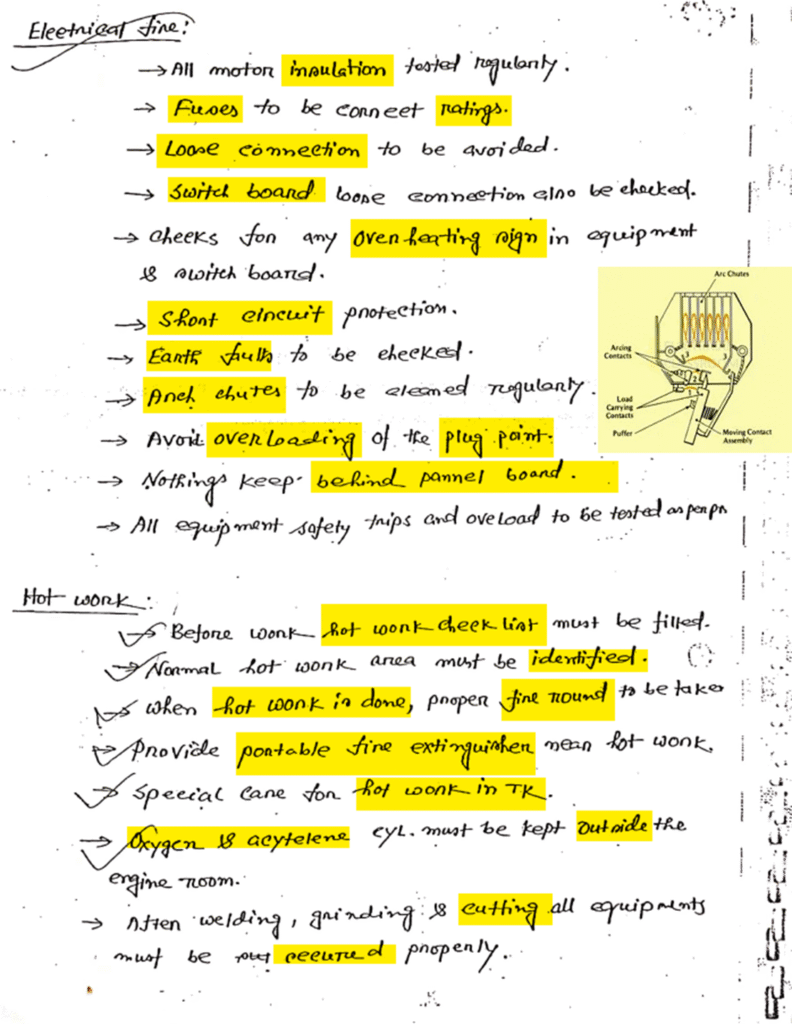 Electrical fire:
→ All motor insulation tested regularly.
→ Fuses to be correct ratings.
→ Loose connection to be avoided.
→ Switch board loose connection also be checked.
→ Checks for any overheating sign in equipment
& switch board.
→ Short circuit protection.
→ Earth faults to be checked.
→ Arch chutes to be cleaned regularly.
→ Avoid overloading of the plug point.
→ Nothings keep behind pannel board.
→ All equipment safety trips and oveload to be tested as per
Arc Chutes
Arcing
Contacts
Load
Carrying
Contacts
Puffer
Moving Contact
Assembly
Hot work:
→ Before work hot work check list must be filled.
→ Normal hot work area must be identified.
→ When hot work is done, proper fire round to be taken
→ Provide portable fire extinguisher near hot work.
→ Special care for hot work in TK.
→ Oxygen & acytelene cyl. must be kept outside the
engine room.
→ After welding, grinding & cutting all equipments
must be secured properly.